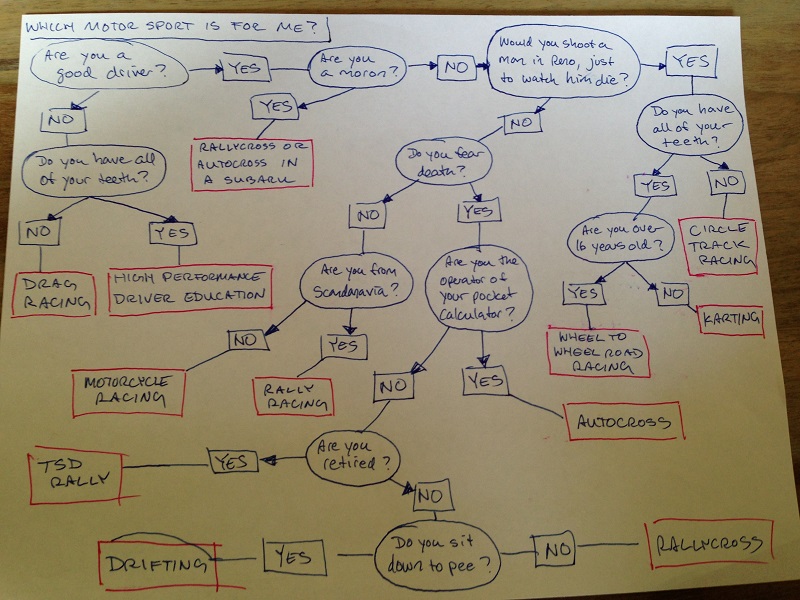 WHICH MOTOR SPORT IS FOR ME?
Are you a
good driver?
YES
Are you
a moron?
NO
Would you shoot a
man in Reno, just
to watch him die?
YES
NO
YES
RALLYCROSS OR
AUTOCROSS IN
A SUBARU
NO
Do you have
all of your
teeth?
Do you have all
of your teeth?
Do you fear
death?
YES
NO
NO
YES
NO
YES
Are you over
16 years old?
CIRCLE
TRACK
RACING
DRAG
RACING
HIGH PERFORMANCE
DRIVER EDUCATION
Are you from
Scandanavia?
Are you the
operator of
your pocket
calculator?
YES
NO
KARTING
NO
YES
WHEEL TO
WHEEL ROAD
RACING
MOTORCYCLE
RACING
RALLY
RACING
NO
YES
AUTOCROSS
Are you
retired?
YES
TSD
RALLY
NO
Do you sit
down to pee?
YES
DRIFTING
NO
RALLYCROSS